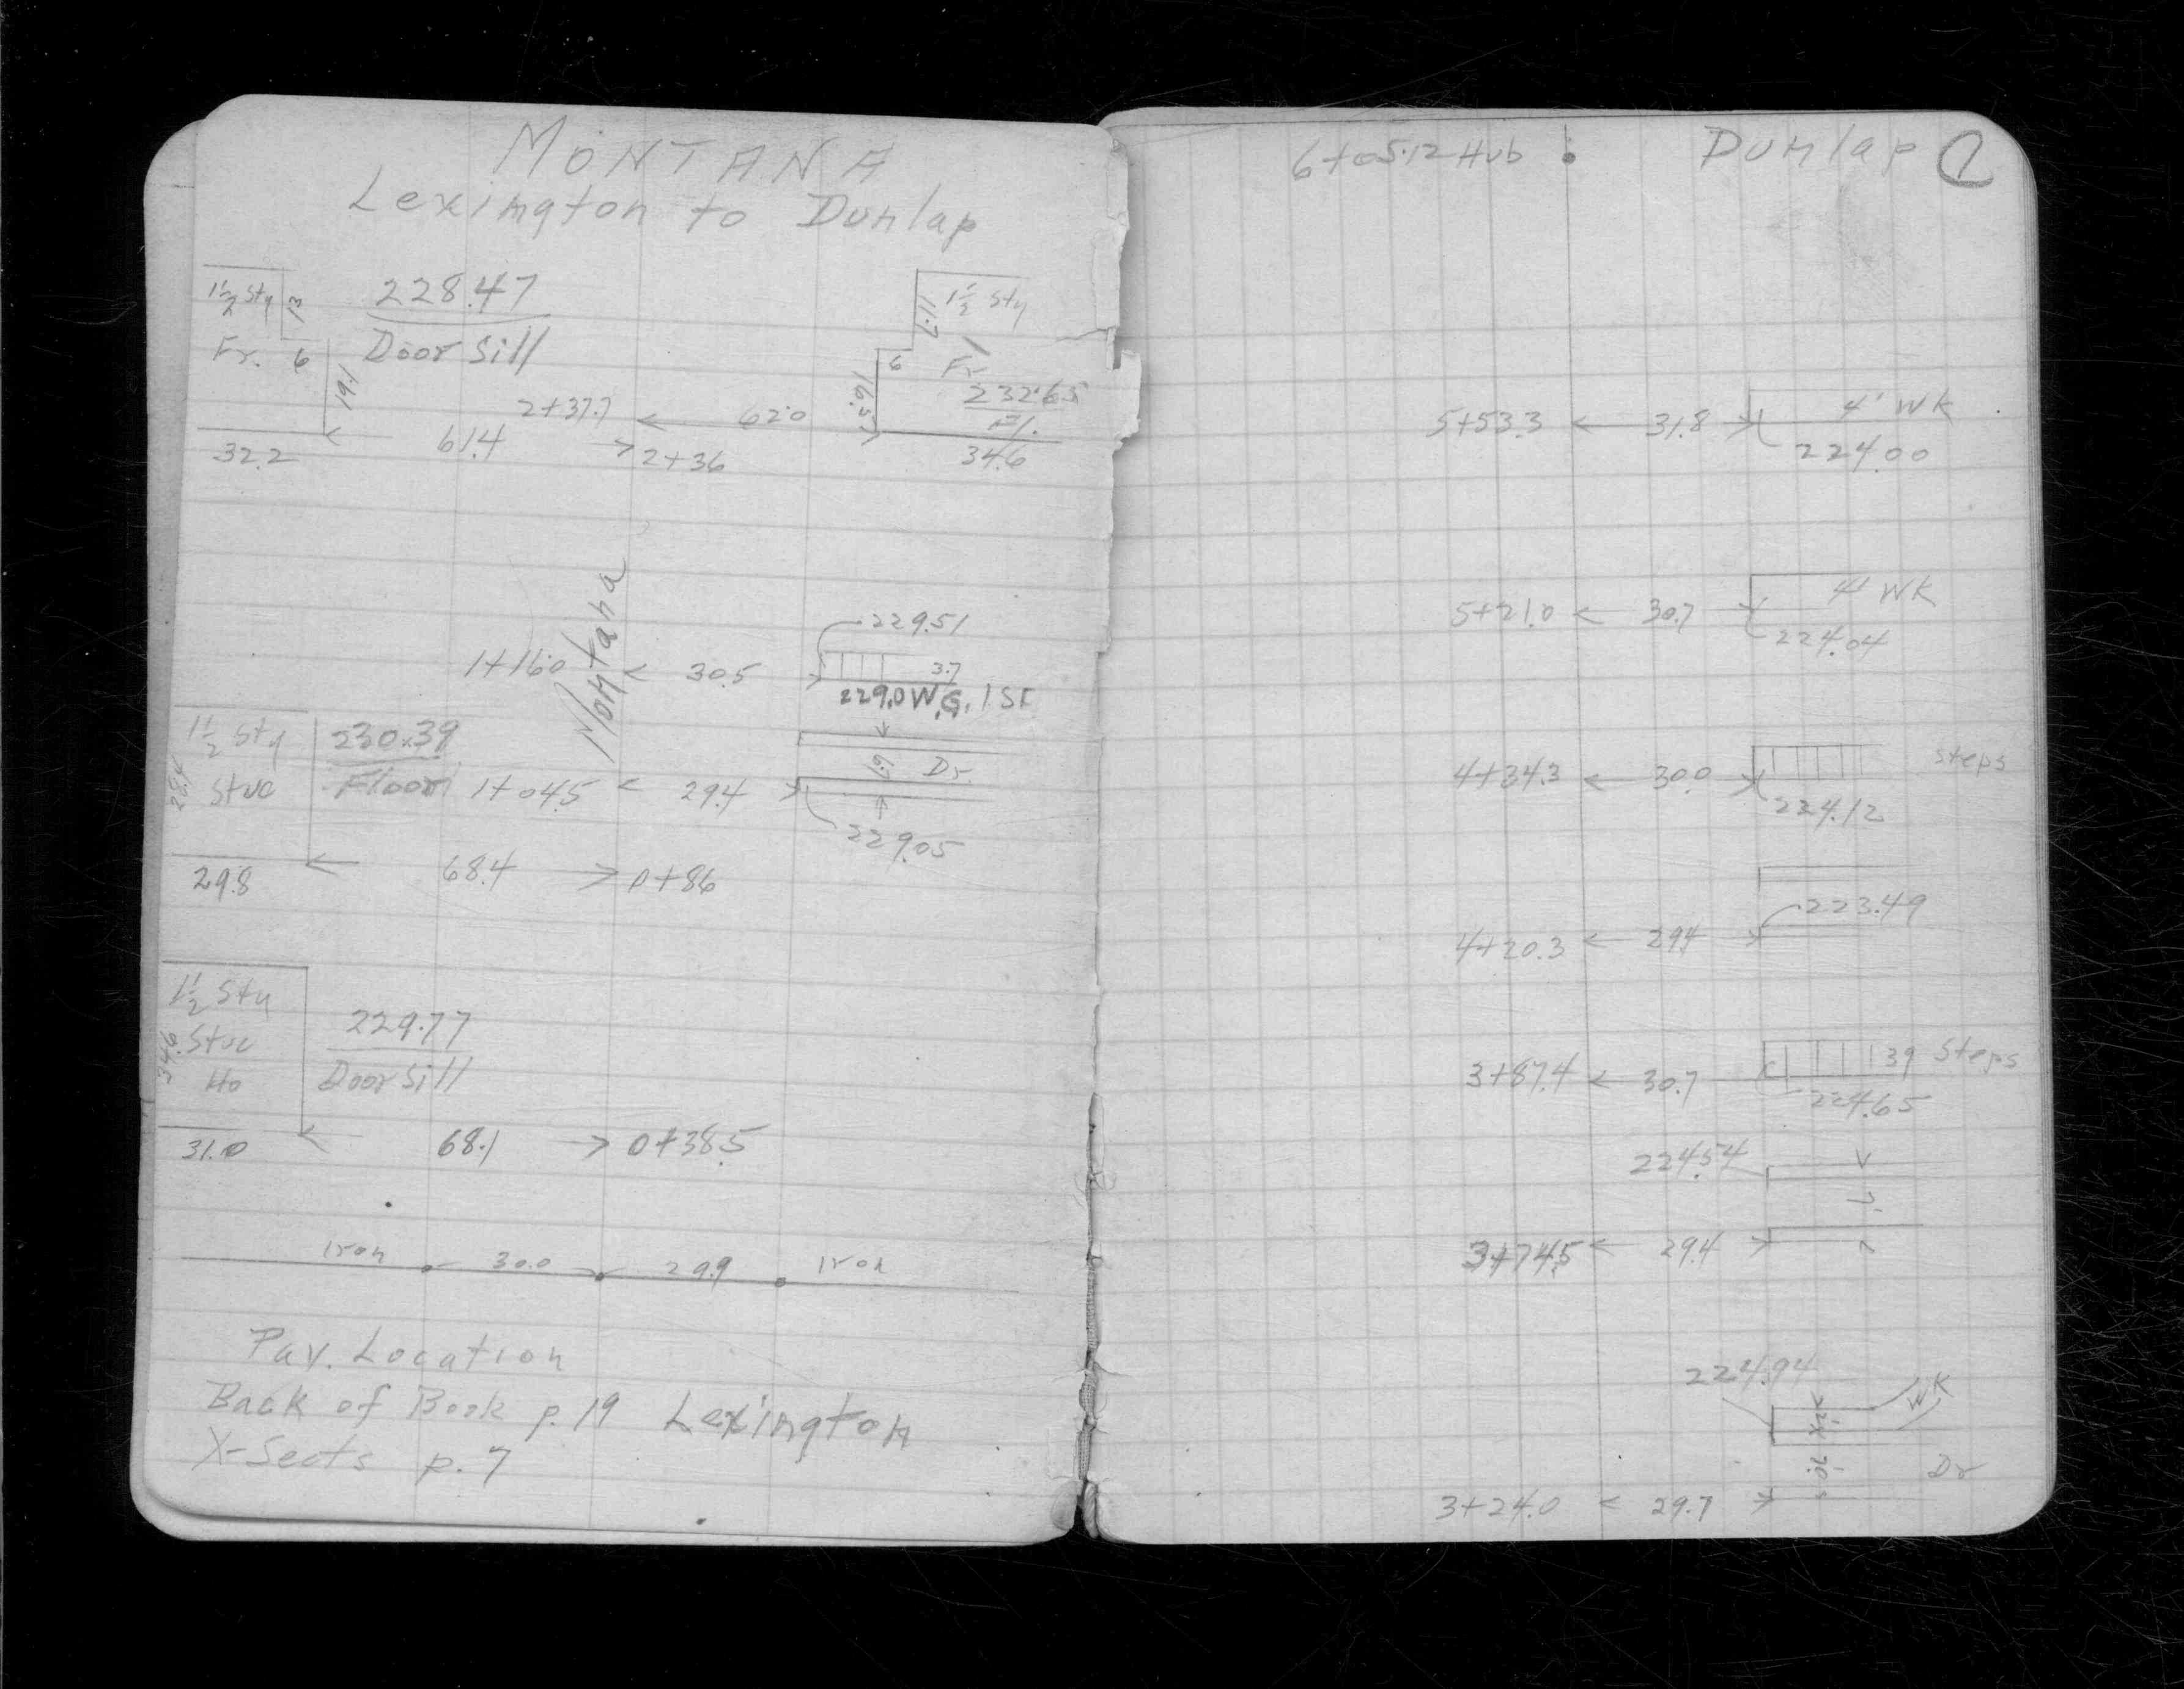 MONTANA
Lexington to Dunlap
1½ Sty 13 228.47 11.7 1½ Sty
Fr. 6 Door Sill 6 Fr
19.1 2+37.7 62.0 16.5 232.65
Fl.
32.2 61.4 2+36 34.6
Montana
229.51
1+16.0 30.5 3.7
229.0 W.G. 1 St
1½ Sty 230.39
28.4 Stuc Floor 1+04.5 29.4 Dr.
229.05
29.8 68.4 0+86
1½ Sty 229.77
34.6 Stuc
Ho Door Sill
31.0 68.1 0+38.5
Iron 30.0 29.9 Iron
Pav. Location
Back of Book p. 19 Lexington
X-Sects p. 7
6+05.12 Hub Dunlap 1
5+53.3 31.8 4' WK
224.00
5+21.0 30.7 4' WK
224.04
4+34.3 30.0 Steps
224.12
223.49
4+20.3 29.4
3+87.4 30.7 3.9 Steps
224.65
224.54
3+74.5 29.4
224.94
WK
Dr
3+24.0 29.7